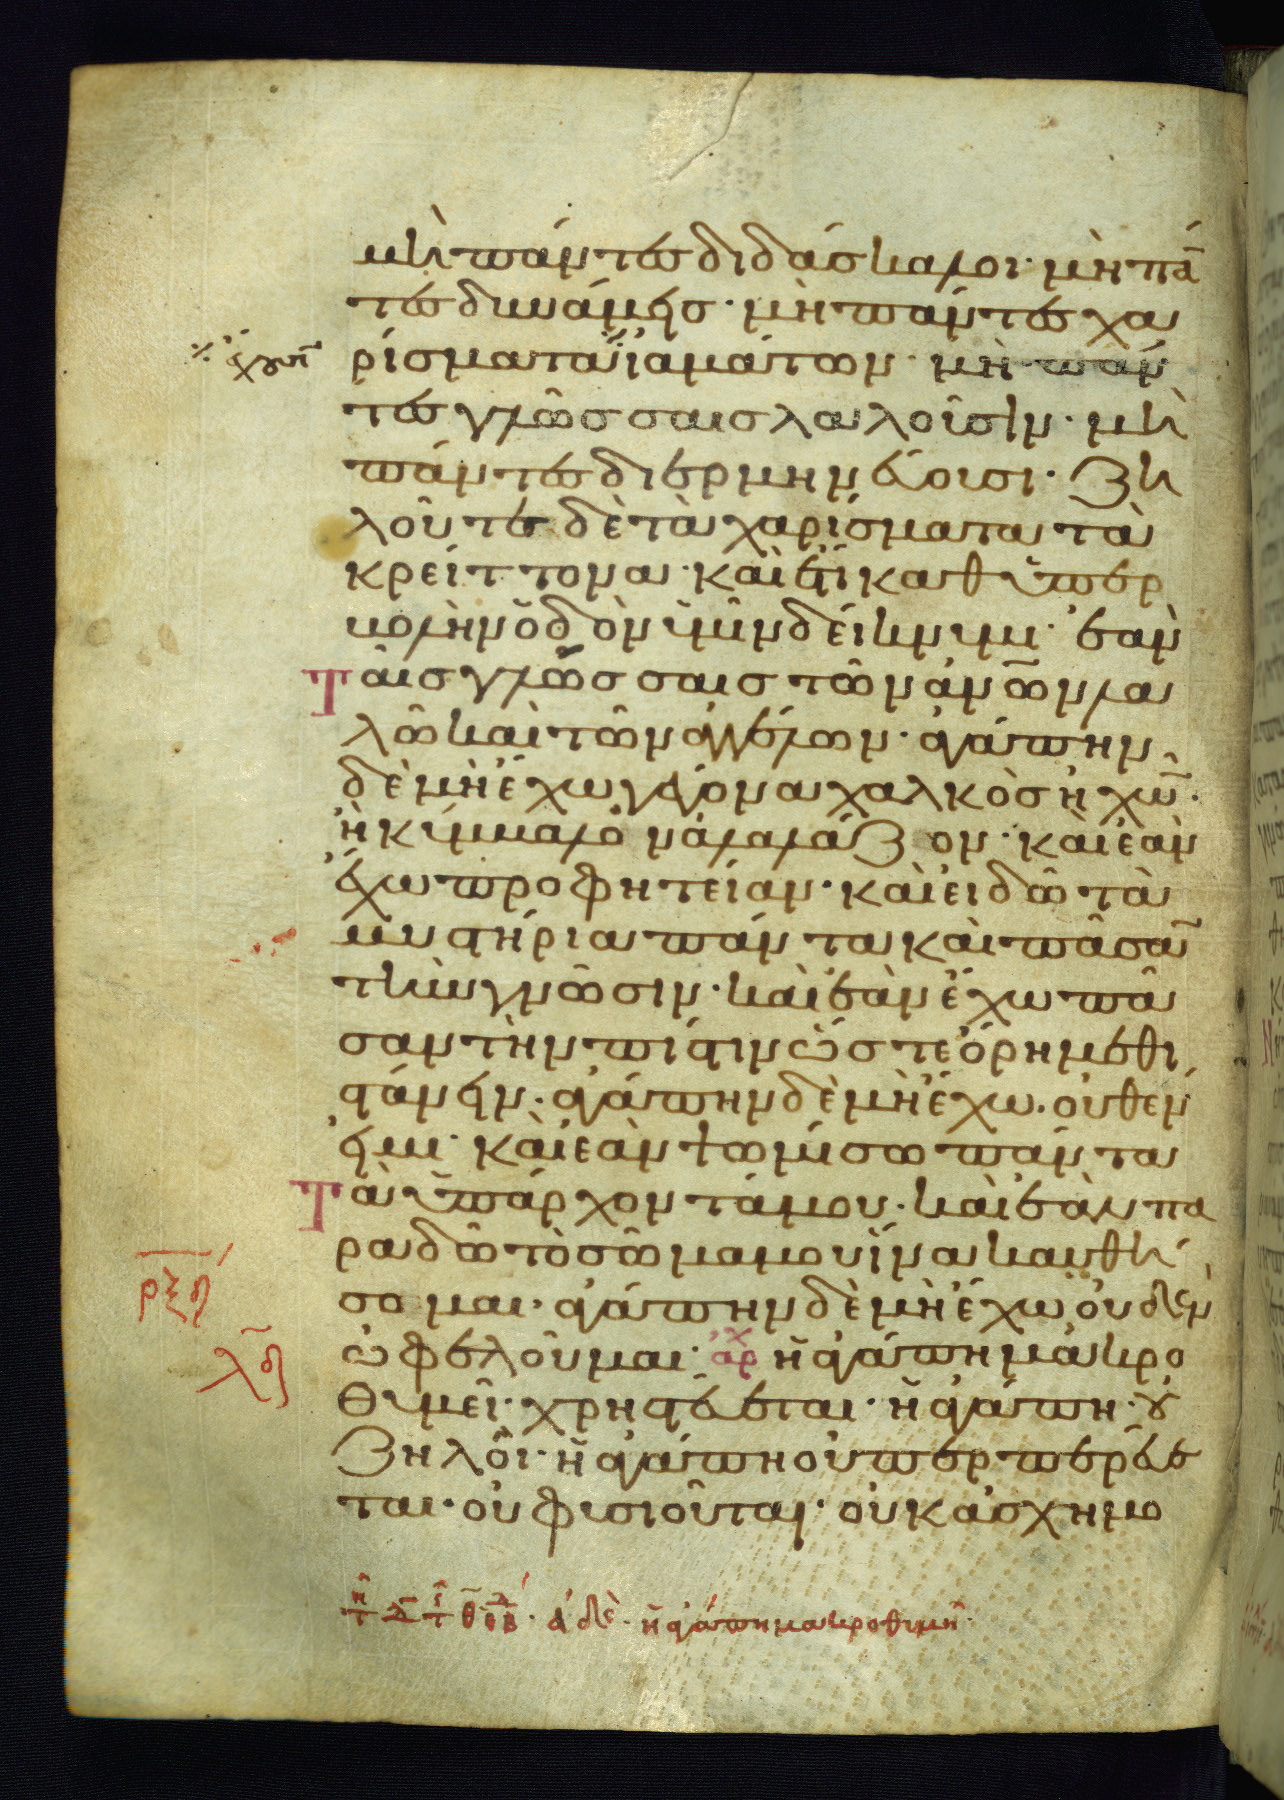 μὴ πάντες διδάσκαλοι· μὴ πά
τες δυνάμεις· μὴ πάντες χα
ἔχουσι ρίσματα ἰαμάτων· μὴ πάν
τες γλώσσαις λαλοῦσιν· μὴ
πάντες διερμηνεύουσι· ζη
λοῦτε δὲ τὰ χαρίσματα τὰ
κρείττονα· καὶ ἔτι καθ ὑπερ
βολὴν ὁδὸν ὑμῖν δείκνυμι· ἐὰν
Ταῖς γλώσσαις τῶν ἀνῶν λα
λῶ καὶ τῶν ἀγγέλων· ἀγάπην
δὲ μὴ ἔχω γέγονα χαλκὸς ἠχῶ·
ἢ κύμβαλον ἀλαλάζον· καὶ ἐὰν
ἔχω προφητείαν· καὶ εἰδῶ τὰ
μυστήρια πάντα καὶ πᾶσα
τὴν γνῶσιν· καὶ ἐὰν ἔχω πᾶ
σαν τὴν πίστιν ὥστε ὄρη μεθι
στάνειν· ἀγάπην δὲ μὴ ἔχω· οὐθέν
εἰμι· καὶ ἐὰν ψωμίσω πάντα
Τὰ ὑπάρχοντά μου· καὶ ἐὰν πα
ραδῶ τὸ σῶμα μου ἵνα καυθή
ρξη
σομαι· ἀγάπην δὲ μὴ ἔχω οὐδὲν
λη ὠφελοῦμαι· ἀρχ ἡ ἀγάπη μακρο
θυμεῖ· χρηστεύεται· ἡ ἀγάπη· οὐ
ζηλοῖ· ἡ ἀγάπη οὐ περπερεύε
ται· οὐ φυσιοῦται· οὐκ ἀσχημο
ἀδε· ἡ ἀγάπη μακροθυμῆ